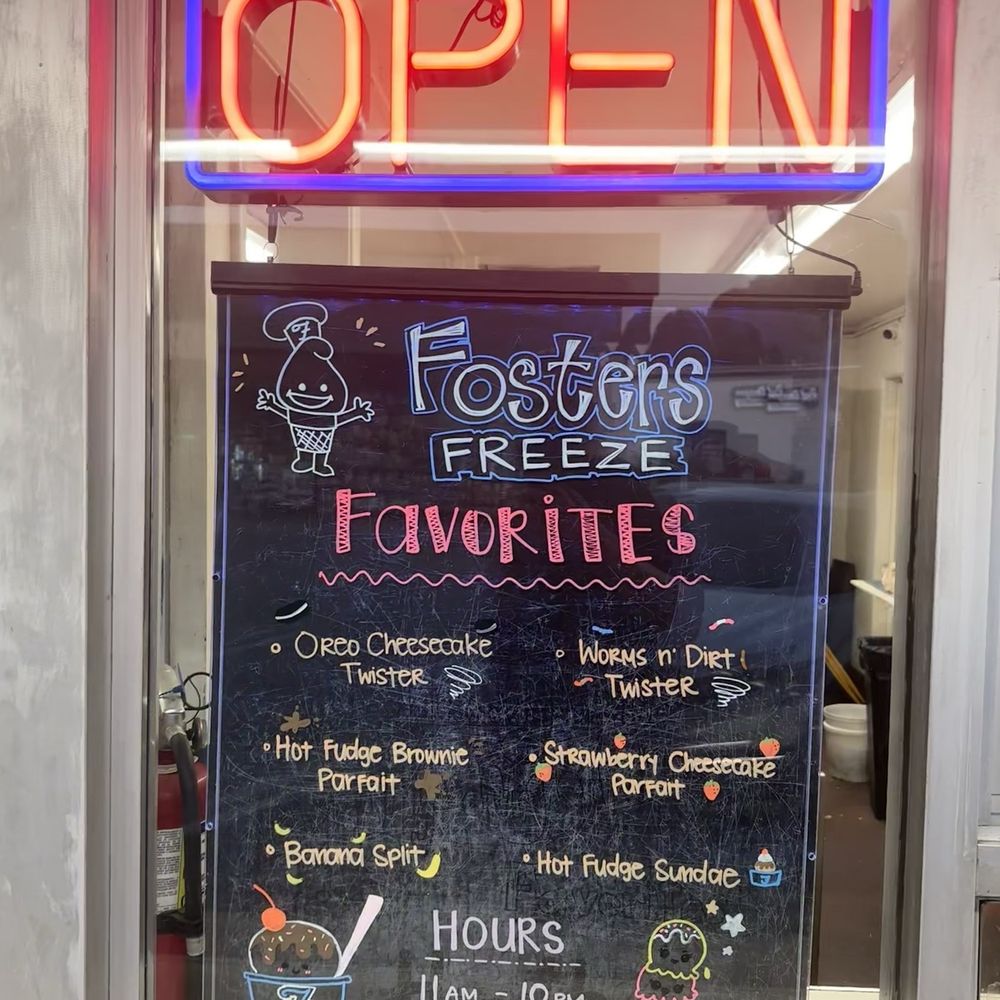 OPEN
Fosters
FREEZE
FAVORITES
OREO CHEESECAKE
TWISTER
WORMS n' DIRT
TWISTER
HOT FUDGE BROWNIE
PARFAIT
STRAWBERRY CHEESECAKE
PARFAIT
BANANA SPLIT
HOT FUDGE SUNDAE
HOURS
11AM - 10PM